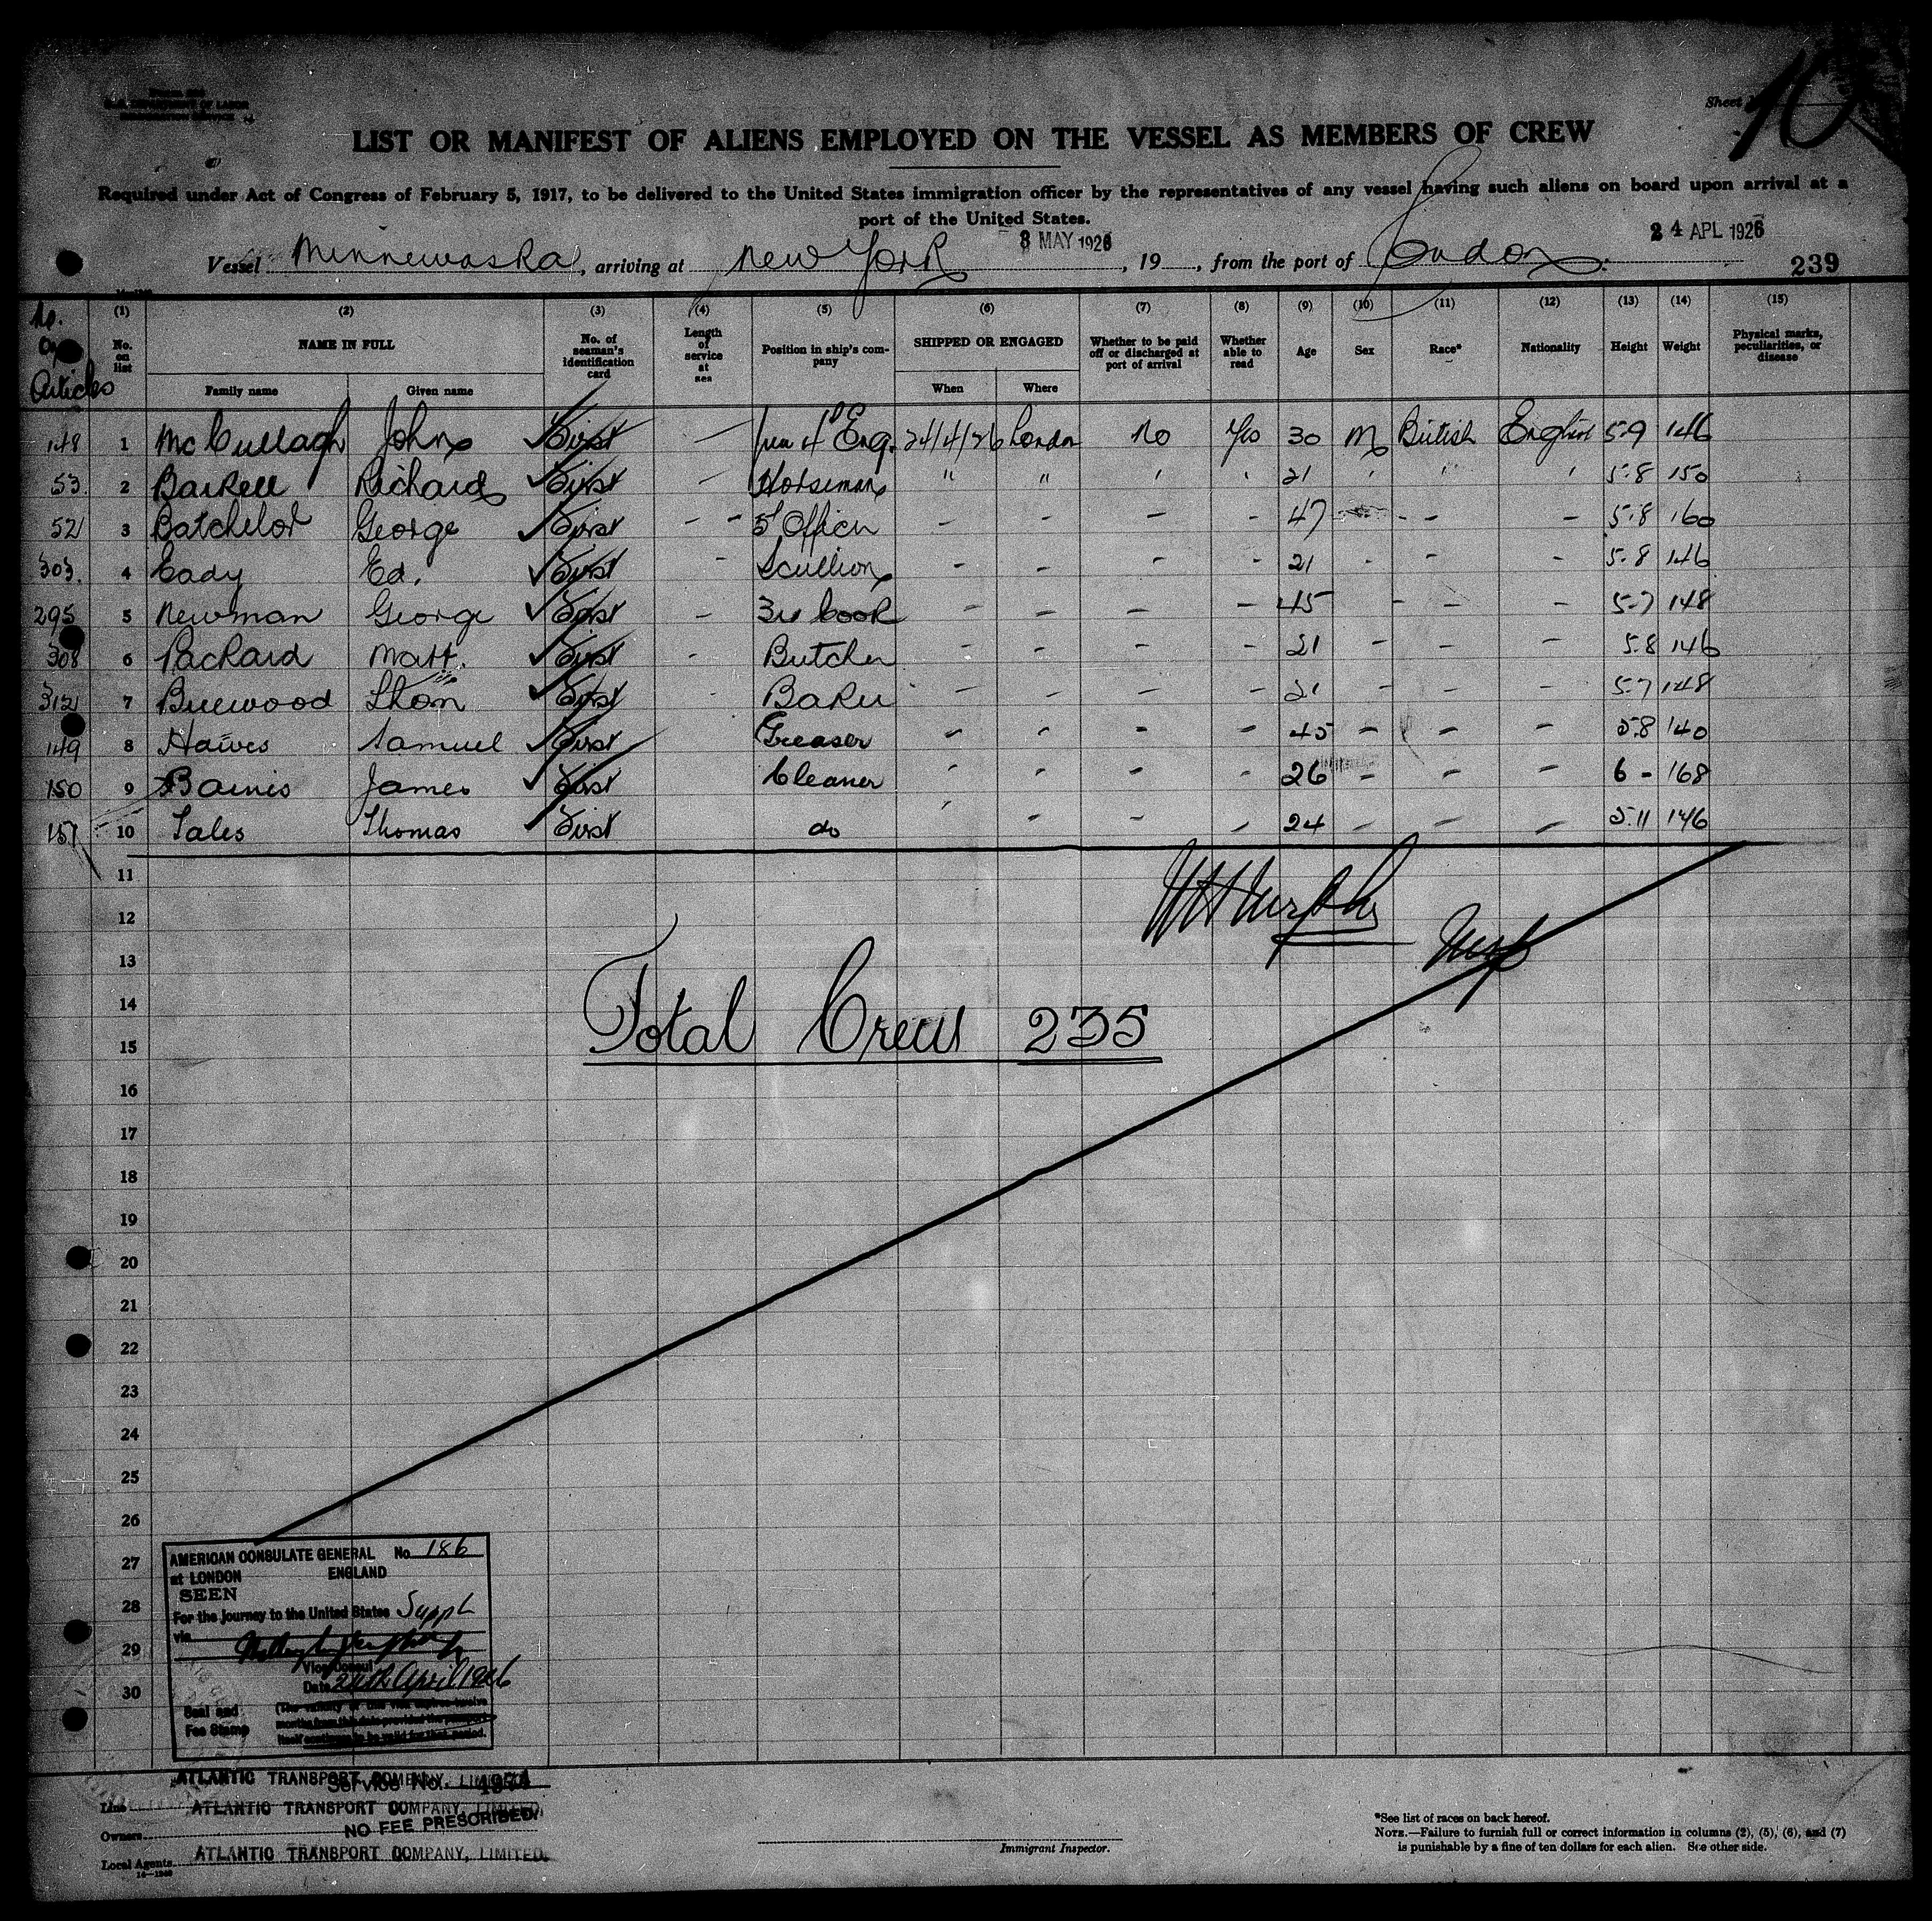 U.S. DEPARTMENT OF LABOR
IMMIGRATION SERVICE
Sheet 10
LIST OR MANIFEST OF ALIENS EMPLOYED ON THE VESSEL AS MEMBERS OF CREW
Required under Act of Congress of February 5, 1917, to be delivered to the United States immigration officer by the representatives of any vessel having such aliens on board upon arrival at a
port of the United States.
8 MAY 1926 24 APL 1926
Vessel Minnewaska, arriving at New York, 19, from the port of London.
239
No. on Articles
(1) (2) (3) (4) (5) (6) (7) (8) (9) (10) (11) (12) (13) (14) (15)
No. on list NAME IN FULL No. of seaman's identification card Length of service at sea Position in ship's company SHIPPED OR ENGAGED Whether to be paid off or discharged at port of arrival Whether able to read Age Sex Race* Nationality Height Weight Physical marks, peculiarities, or disease
Family name Given name When Where
148 1 McCullagh John First — Jun 4 Eng. 24/4/26 London No Yes 30 M British English 5-9 146
53 2 Barkell Richard First — Horseman " " " " 21 " " " 5-8 150
52 3 Batchelor George First - - 5 Officer - - - - 47 - - - 5-8 160
303 4 Eady Ed. First - Scullion - - - - 21 - - - 5-8 146
295 5 Newman George First - 3rd Cook - - - - 45 - - - 5-7 148
308 6 Packard Matt. First - Butcher - - - - 21 - - - 5-8 146
312 7 Thom First - Baker - - - - 21 - - - 5-7 148
149 8 Hawes Samuel First Greaser - - - - 45 - - - 5-8 140
150 9 James First Cleaner - - - - 26 - - - 6 - 168
151 10 Sales Thomas First do - - - - 24 - - - 5-11 146
11
12
W H Murphy
13
14
15
Total Crew 235
16
17
18
19
20
21
22
23
24
25
26
27
28
29
30
AMERICAN CONSULATE GENERAL No. 186
at LONDON ENGLAND
SEEN
For the journey to the United States Suppl
via
Vice Consul
Date 24th April 1926
Seal and
Fee Stamp
(The validity of this visa expires twelve
months from this date provided the passport
itself continues to be valid for that period.
Service No.
Line ATLANTIC TRANSPORT COMPANY, LIMITED
ATLANTIC TRANSPORT COMPANY, LIMITED
NO FEE PRESCRIBED.
Owners
Local Agents ATLANTIC TRANSPORT COMPANY, LIMITED.
Immigrant Inspector.
*See list of races on back hereof.
NOTE.—Failure to furnish full or correct information in columns (2), (5), (6), and (7)
is punishable by a fine of ten dollars for each alien. See other side.